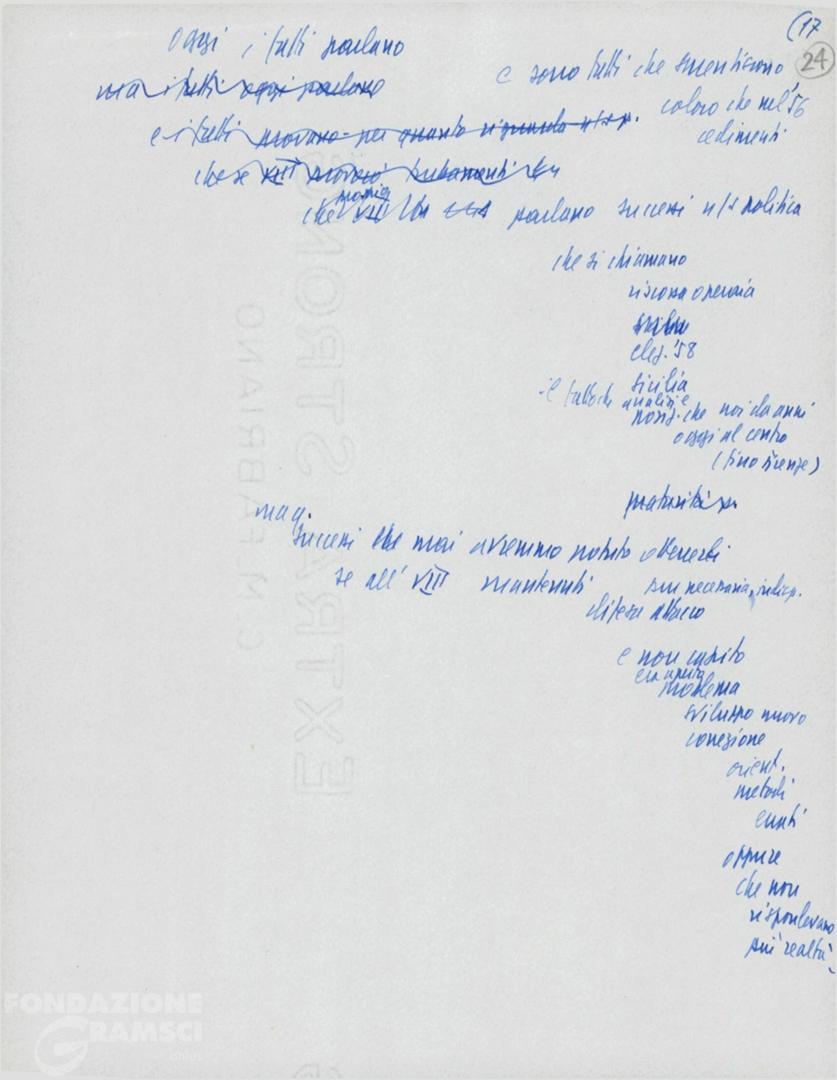 (17
24
Oggi i fatti parlano
e sono fatti che smentiscono
ma i fatti oggi parlano
coloro che nel '56
cedimenti
e i fatti provano per quanto riguarda n/s p.
che se VIII
che VIII parlano successi n/s politica
che si chiamano
riscossa operaia
elez. '58
Sicilia
il fatto che analisi e
posiz. che noi da anni
oggi al centro
(fino Firenze)
maturità p.
ma q.
successi che mai avremmo potuto ottenerli
se all' VIII mantenuti
pur necessaria, indisp.
difesa attacco
e non capito
era aperto
problema
sviluppo nuovo
correzione
orient.
metodi
oppure
che non
rispondevano
più realtà
C.M. FABRIANO
EXTRA STRONG
FONDAZIONE
GRAMSCI
onlus